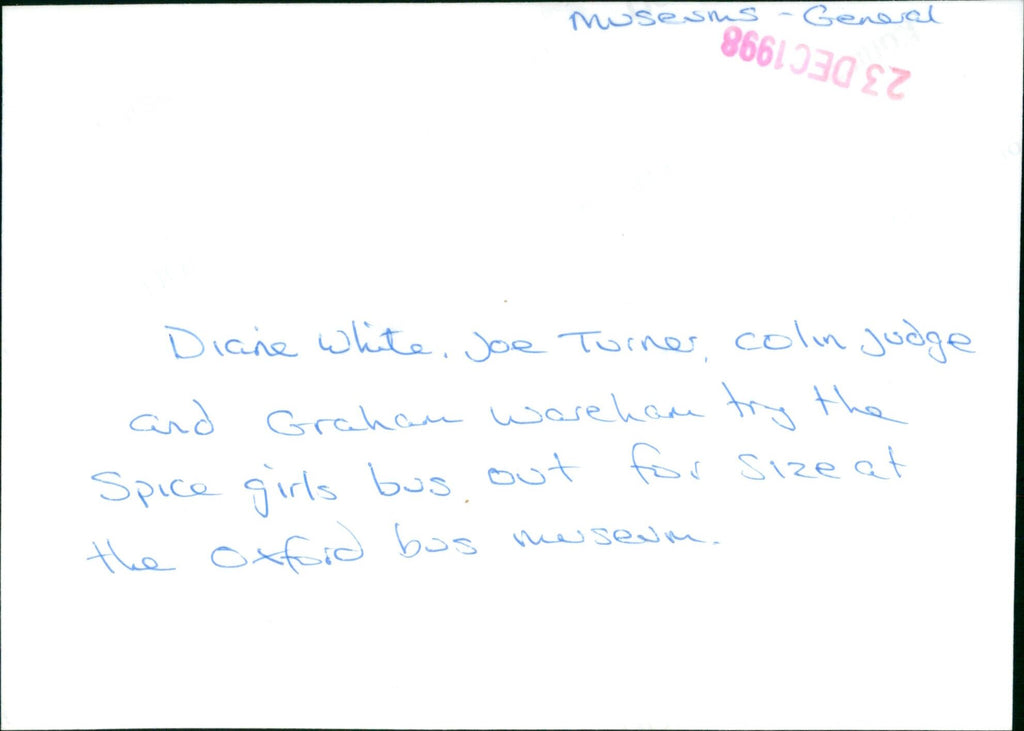 Museums - General
23 DEC 1998
Diane White, Joe Turner, colin judge
and Graham Wareham try the
Spice girls bus out for size at
the Oxford bus museum.